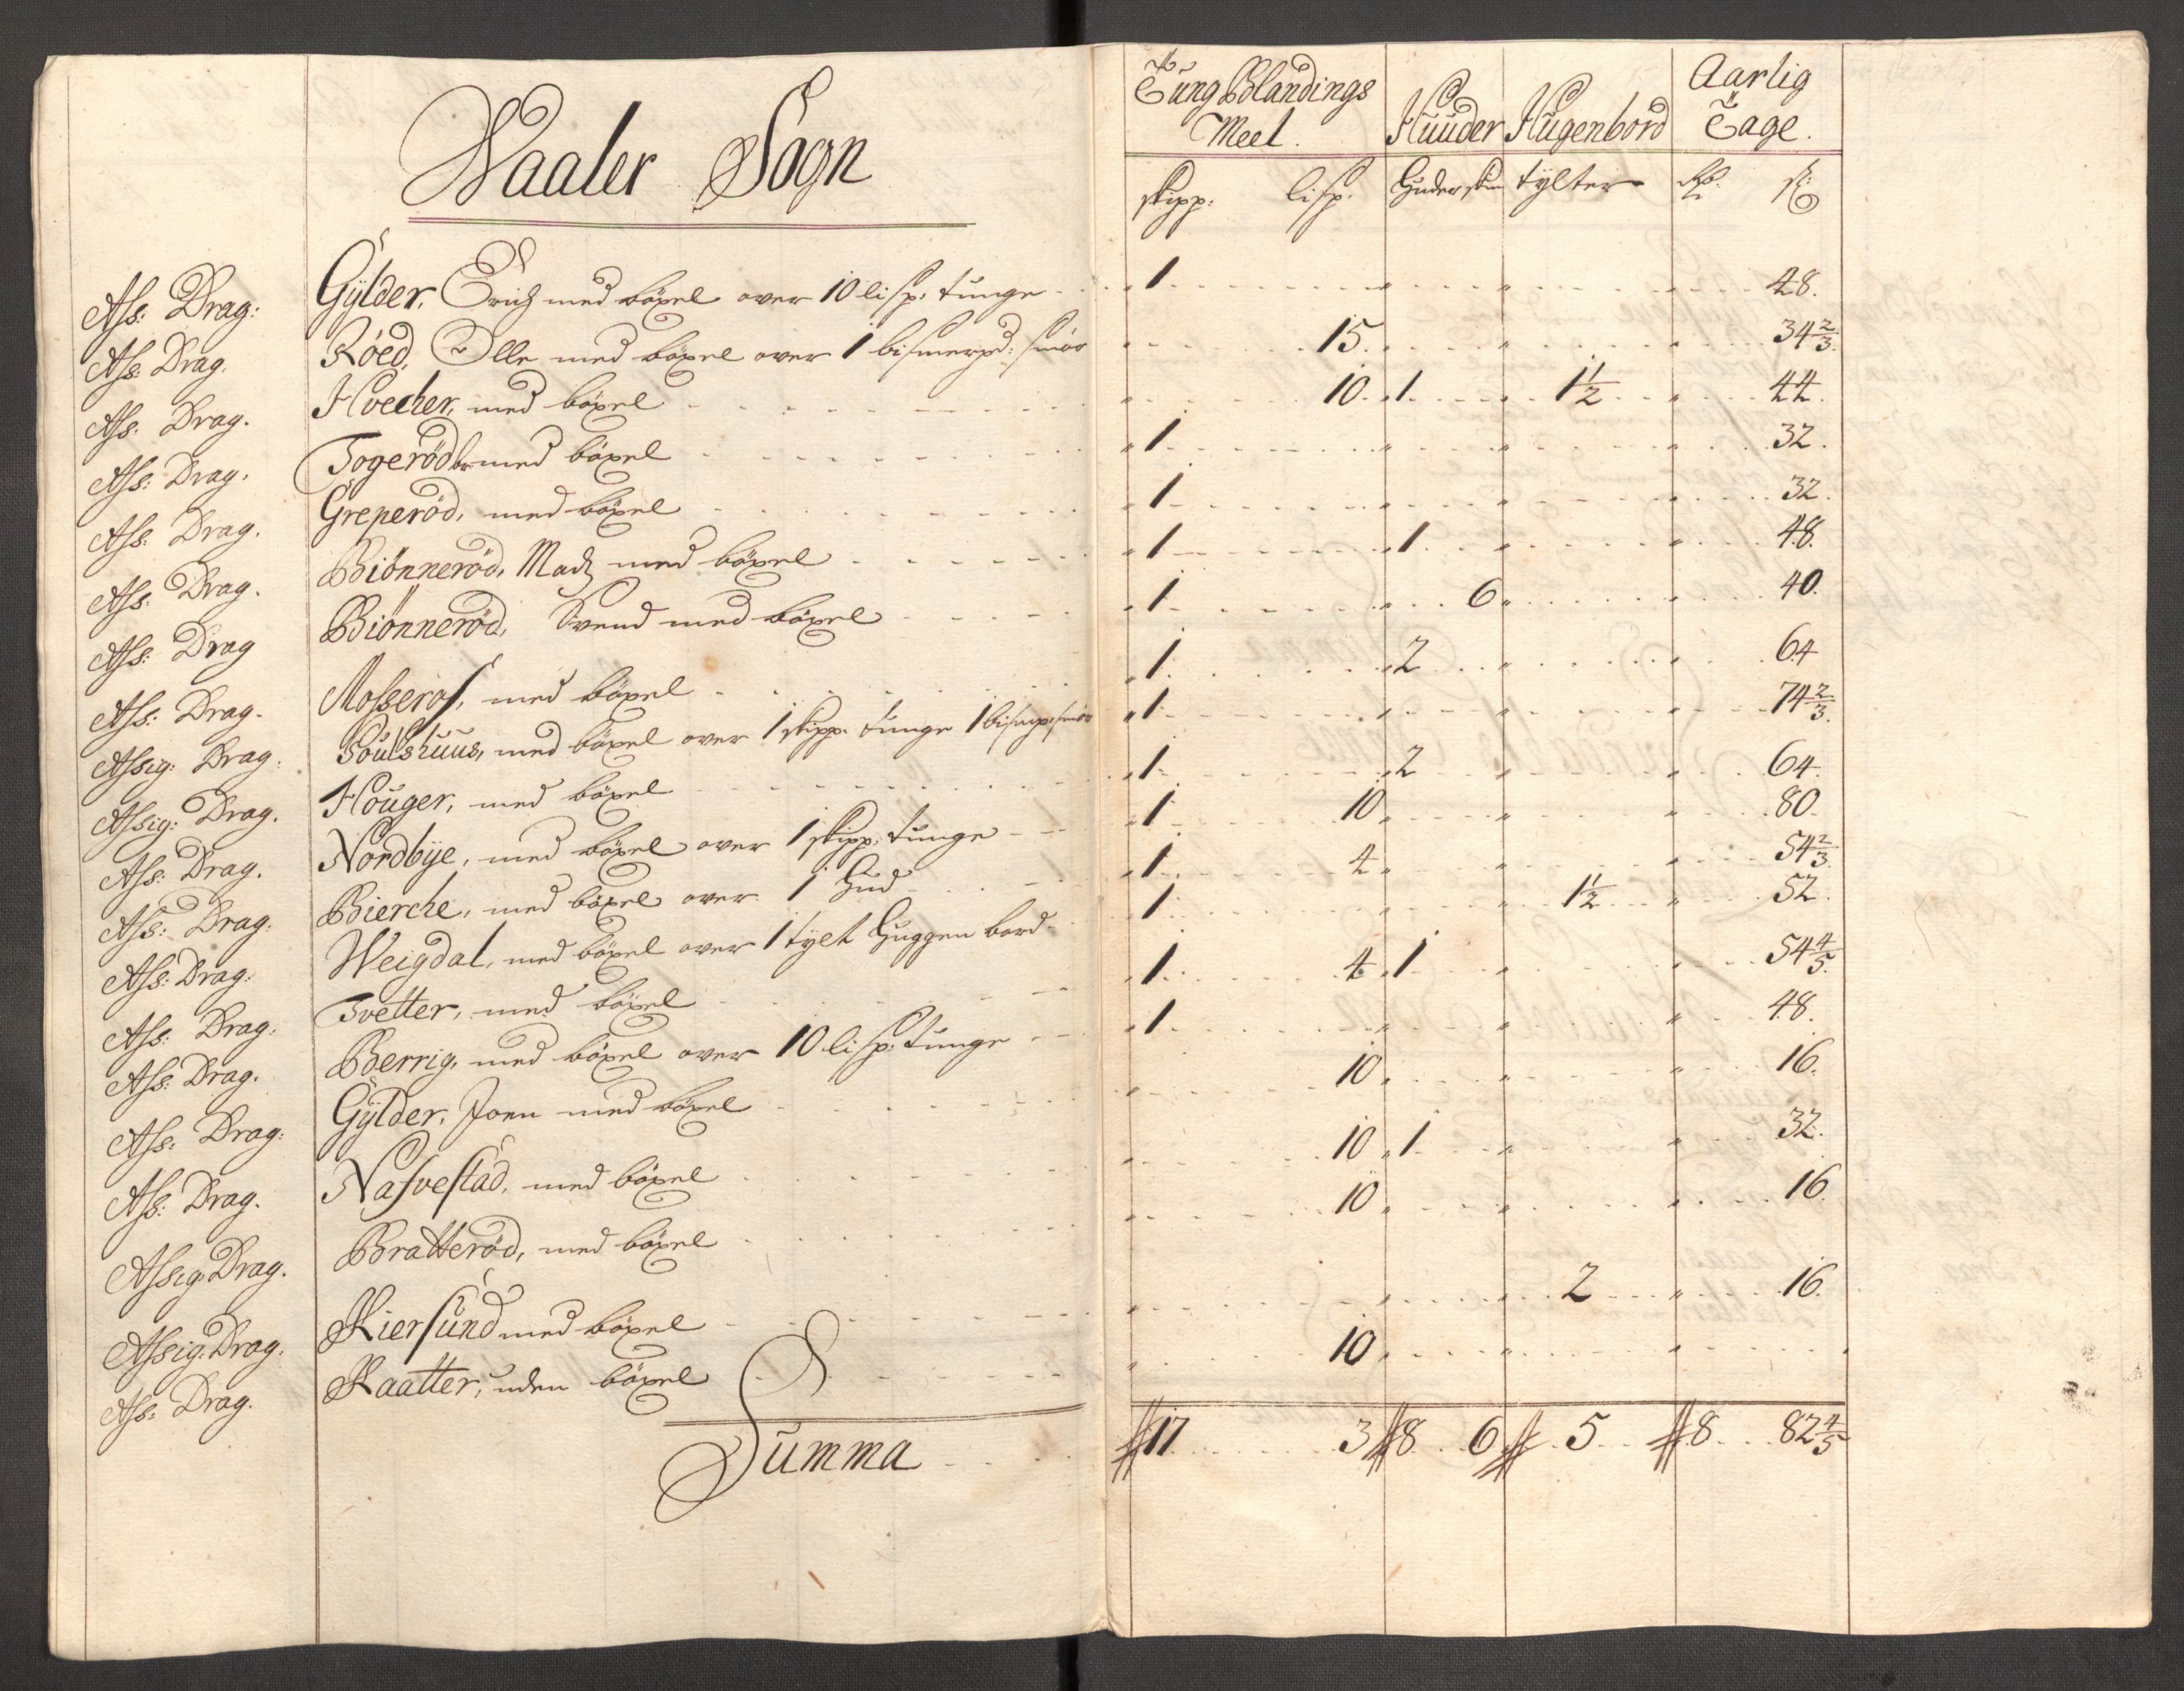 Waaler Sogn
Tung Blandings Meel. Huuder Hugenbord Aarlig Tage.
skipp: lisp. Huder skin tylter Rd. s:
Ass: Drag: Gylder, Erich med böxel over 10 lisp: tunge 1 48.
Ass: Drag. Röed, Olle med böxel over 1 bismerpd: smör 15. 34 2/3.
Ass. Drag. Hvecher, med böxel 10. 1 1 1/2 44.
Ass: Drag. Togeröd med böxel 1 32.
Ass. Drag. Greperöd, med böxel 1 32.
Ass. Drag. Biönneröd, Madz med böxel 1 1 48.
Ass: Drag Biönneröd, Svend med böxel 1 6 40.
Ass: Drag. Mosseros, med böxel 1 2 64
Assig: Drag. Poulshuus, med böxel over 1 skipp. tunge 1 bismp: smör 1 74 2/3.
Assig: Drag. Houger, med böxel 1 2 64.
Ass: Drag. Nordbye, med böxel over 1 skipp: tunge 1 10 80.
Ass: Drag. Bierche, med böxel over 1 Hud 1 4 54 2/3.
Ass: Drag: Weigdal, med böxel over 1 tylt Huggen bord 1 1 1/2 52.
Ass: Drag: Tvetter, med böxel 1 4 1 54 4/5.
Ass: Drag. Berrig, med böxel over 10 lisp: tunge 1 48.
Ass: Drag: Gylder, Joen med böxel 10 16.
Ass: Drag. Nasvestad, med böxel 10 1 32.
Assig: Drag. Bratteröd, med böxel 10 16.
Assig: Drag. Kiersund med böxel 2 16.
Ass: Drag. Kaatter, uden böxel 10
Summa 17 3 8 6 5 8 82 4/5